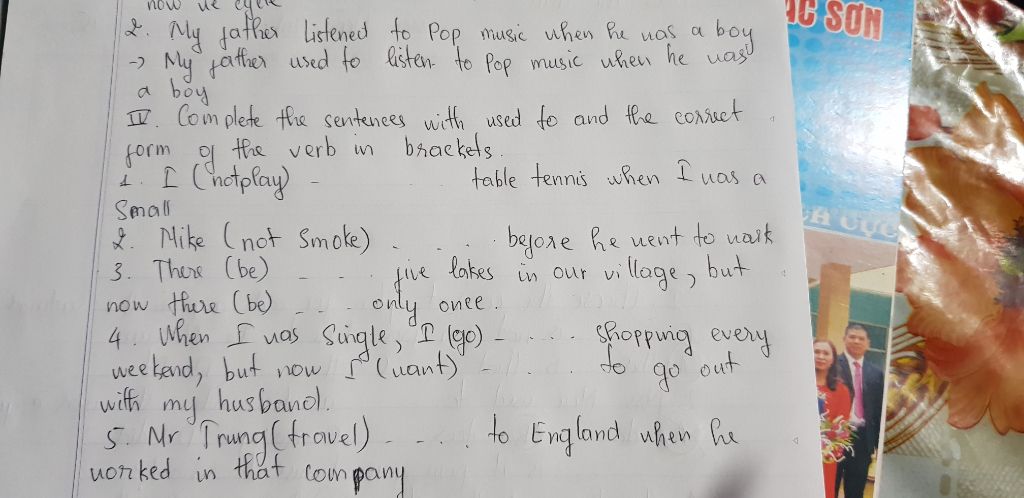 now we cycle
2. My father listened to Pop music when he was a boy
-> My father used to listen to Pop music when he was
a boy
IV. Complete the sentences with used to and the correct
form of the verb in brackets.
1. I (notplay) - table tennis when I was a
Small
2. Mike (not Smoke) . . . . before he went to work
3. There (be) - . . . five lakes in our village, but
now there (be) - - . . only once.
4. When I was Single, I (go) - . . . . shopping every
weekend, but now I (want) - . . to go out
with my husband.
5. Mr Trung (travel) - . . . to England when he
worked in that company
ẠC SƠN
H CỰC